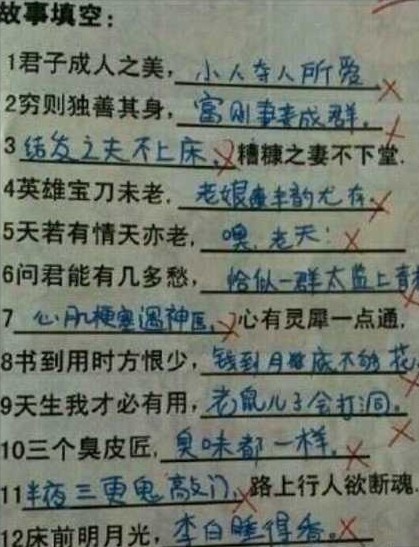 故事填空：
1君子成人之美，小人夺人所爱
2穷则独善其身，富则妻妾成群。
3结发之夫不上床，糟糠之妻不下堂.
4英雄宝刀未老，老娘丰韵尤存
5天若有情天亦老，噢，老天！
6问君能有几多愁，恰似一群太监上青
7心肌梗塞遇神医，心有灵犀一点通，
8书到用时方恨少，钱到月底不够花
9天生我才必有用，老鼠儿子会打洞。
10三个臭皮匠，臭味都一样。
11半夜三更鬼敲门，路上行人欲断魂.
12床前明月光，李白睡得香。